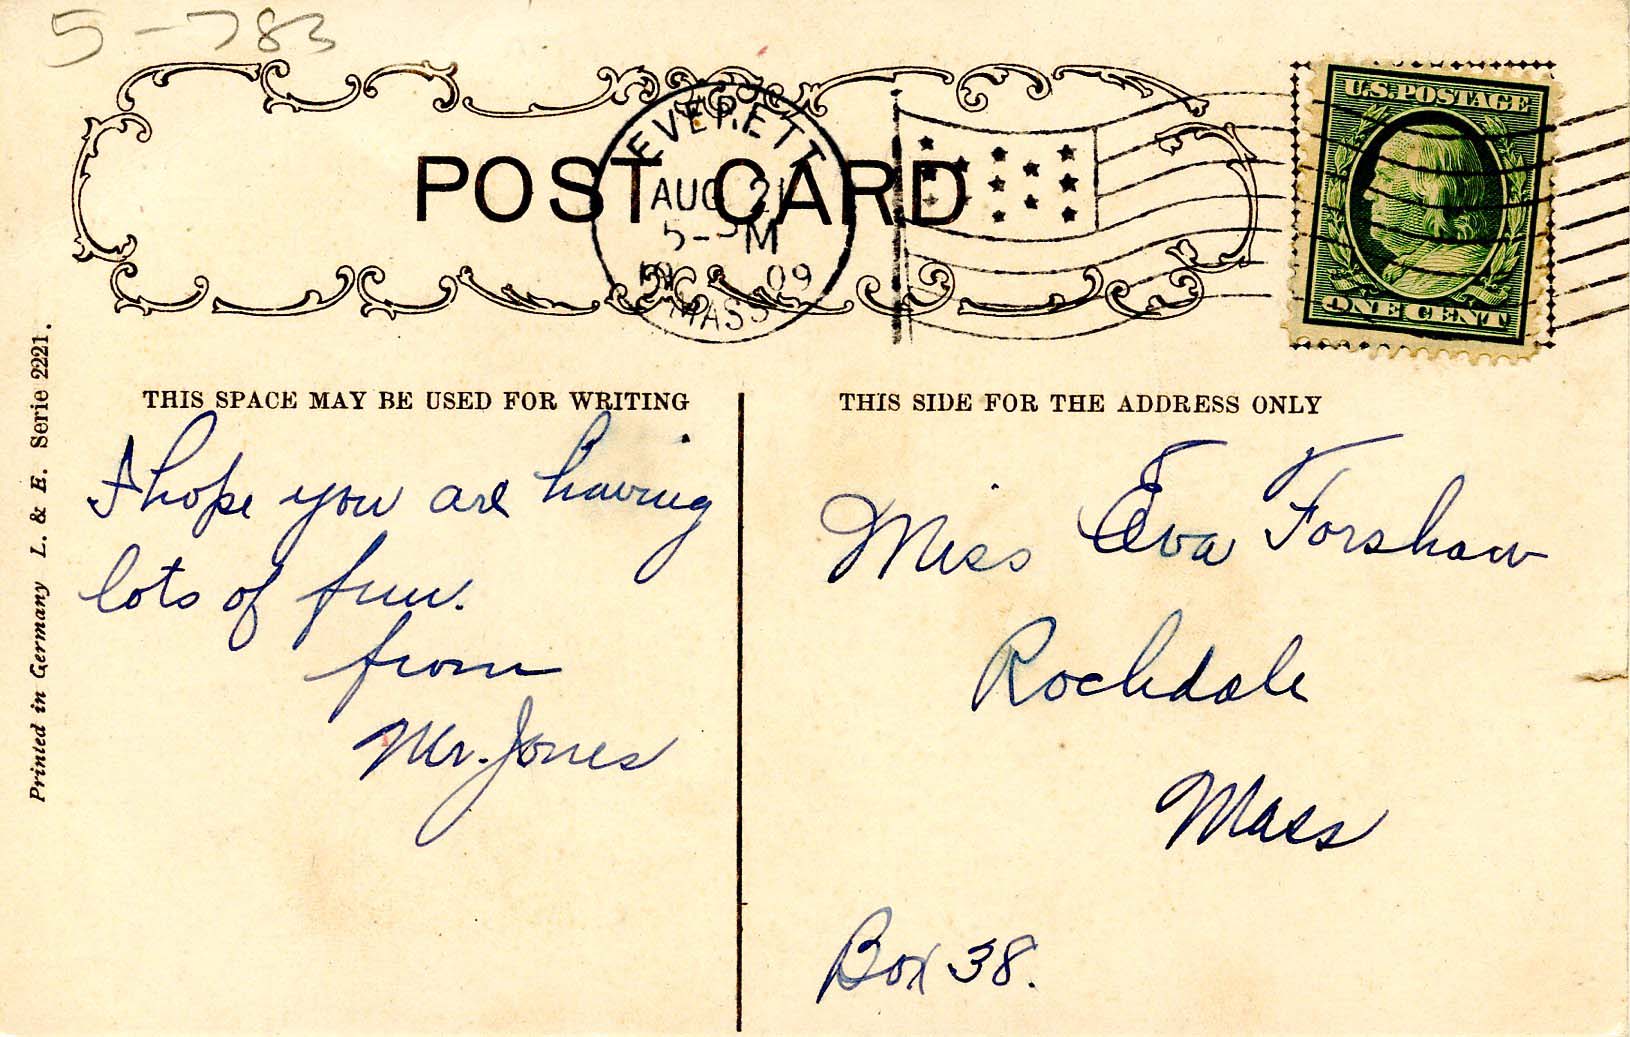 5-783
POST CARD
EVERETT
AUG 21
5-PM
1909
MASS
U.S. POSTAGE
ONE CENT
Printed in Germany L. & E. Serie 2221.
THIS SPACE MAY BE USED FOR WRITING
I hope you are having
lots of fun.
from
Mr. Jones
THIS SIDE FOR THE ADDRESS ONLY
Miss Eva Forshaw
Rochdale
Mass
Box 38.